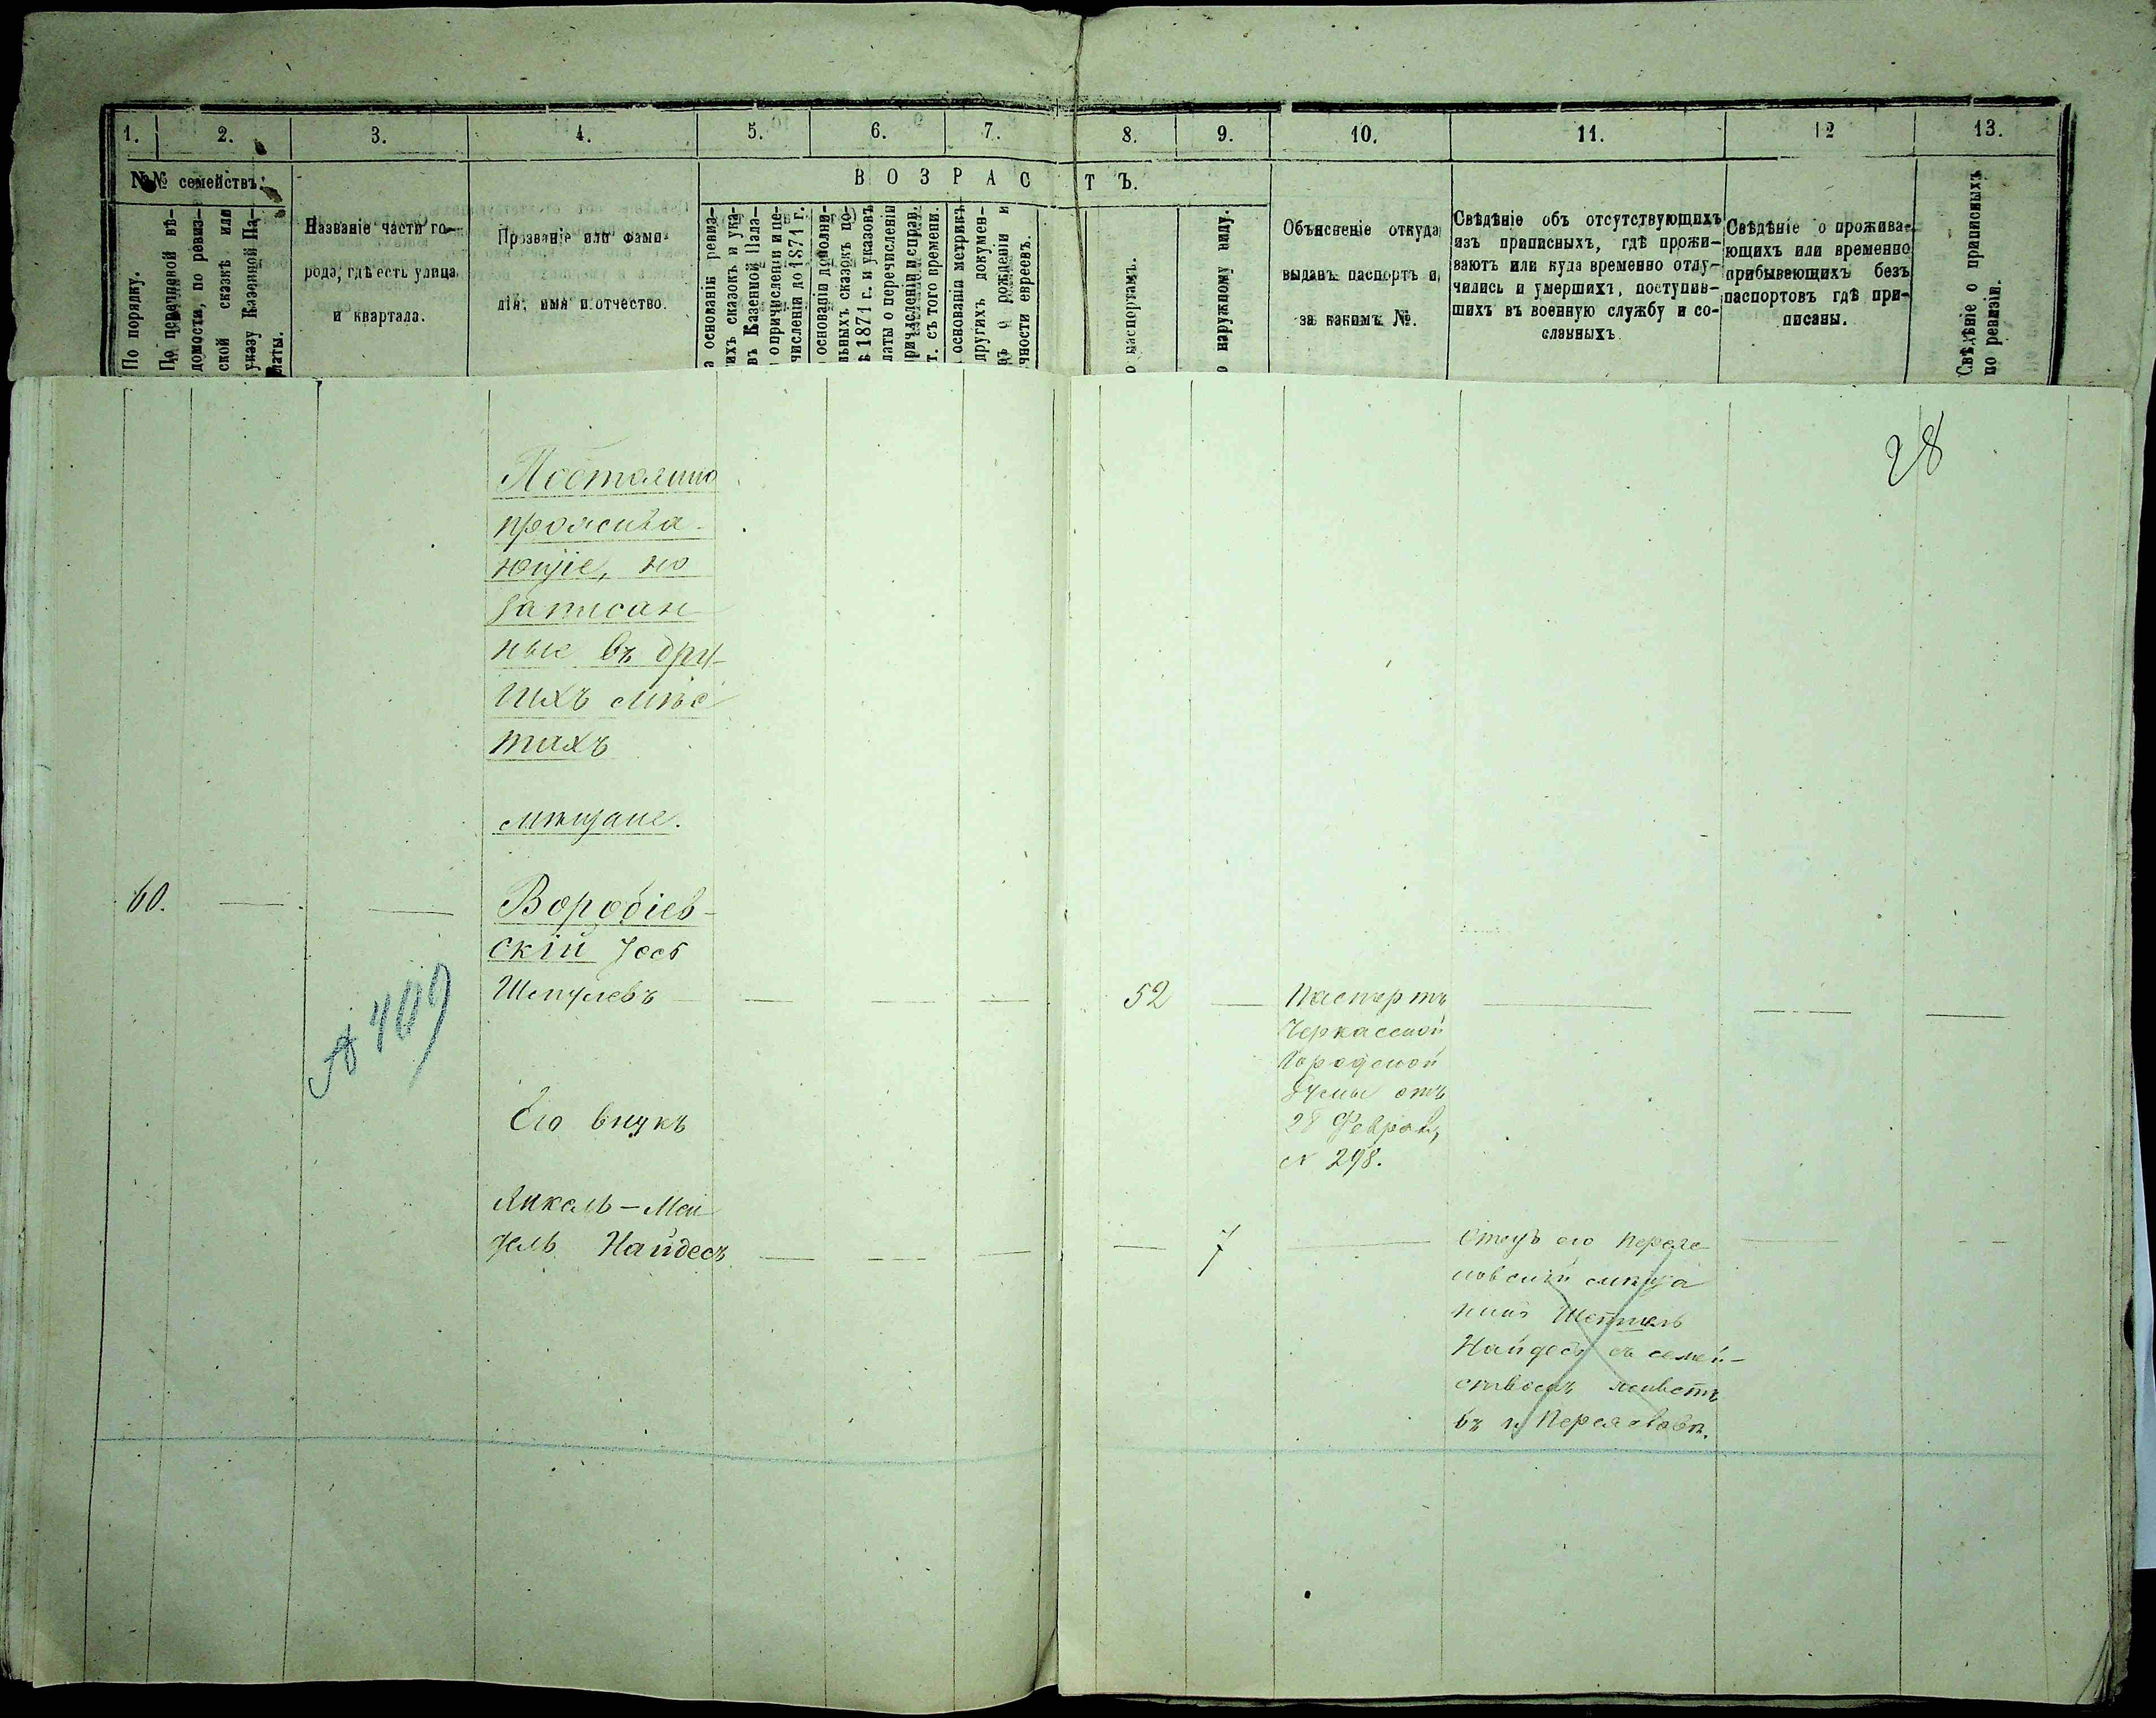 1. 2. 3. 4. 5. 6. 7. 8. 9. 10. 11. 12 13.
№№ семействъ.
ВОЗРАСТЪ.
По порядку.
По перечневой вѣ-
домости, по ревиз-
ской сказкѣ или
указу Казенной Па-
латы.
Названіе части го-
рода, гдѣ есть улица
и квартала.
Прозваніе или фами-
лія, имя и отчество.
основаніи ревиз-
ихъ сказокъ и ука-
въ Казенной Пала-
о причисленіи и пе-
численіи до 1871 г.
основаніи дополни-
льныхъ сказокъ по-
ѣ 1871 г. и указовъ
латы о перечисленіи
причисленіи и справ.
т. съ того времени.
основаніи метрикъ
другихъ докумен-
ъ о рожденіи и
чности евреевъ.
о паспортамъ.
о наружному виду.
Объясненіе откуда
выданъ паспортъ и
за какимъ №.
Свѣдѣніе объ отсутствующихъ
изъ приписныхъ, гдѣ прожи-
ваютъ или куда временно отлу-
чились и умершихъ, поступив-
шихъ въ военную службу и со-
сланныхъ
Свѣдѣніе о прожива-
ющихъ или временно
прибывающихъ безъ
паспортовъ гдѣ при-
писаны.
Свѣдѣніе о приписныхъ
по ревизіи.
28
Постоянно
прожива-
ющіе, но
записан-
ные въ дру-
гихъ мѣс-
тахъ
мѣщане.
60. Воробіев-
скій Іось
Шмулевъ 52
Паспортъ
Черкасской
Городской
Думы отъ
28 Феврал,
№ 298.
№ 409
Его внукъ
Янкель-Мен
дель Найдесъ 7
Отецъ его Перея
новскій мѣща
нинъ
Найдесъ съ семей-
ствомъ живетъ
въ г. Переяславѣ.